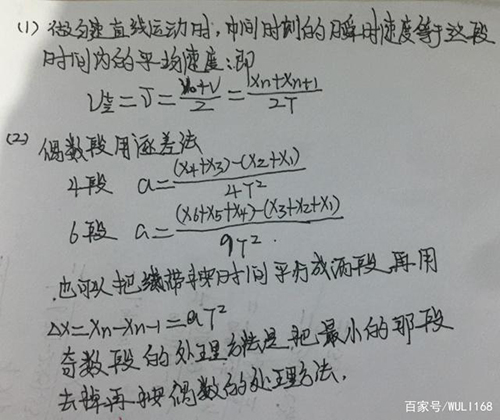 (1) 做匀速直线运动时,中间时刻的瞬时速度等于这段
时间内的平均速度:即
V_{t/2} = V̄ = (V₀+V)/2 = (Xn+Xn+1)/2T
(2) 偶数段用逐差法
4段 a = ((X4+X3)-(X2+X1))/4T²
6段 a = ((X6+X5+X4)-(X3+X2+X1))/9T².
也可以把纸带按时间平分成两段,再用
Δx = Xn-Xn-1 = aT²
奇数段的处理方法是,把最小的那段
去掉再按偶数的处理方法.
百家号/WULI168